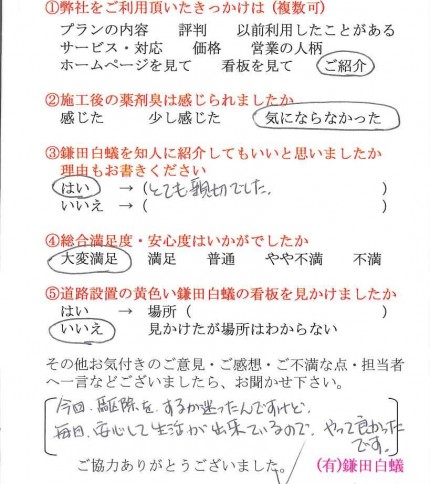 ①弊社をご利用頂いたきっかけは (複数可)
プランの内容 評判 以前利用したことがある
サービス・対応 価格 営業の人柄
ホームページを見て 看板を見て ご紹介
②施工後の薬剤臭は感じられましたか
感じた 少し感じた 気にならなかった
③鎌田白蟻を知人に紹介してもいいと思いましたか
理由もお書きください
はい → (とても親切でした。 )
いいえ → ( )
④総合満足度・安心度はいかがでしたか
大変満足 満足 普通 やや不満 不満
⑤道路設置の黄色い鎌田白蟻の看板を見かけましたか
はい → 場所 ( )
いいえ 見かけたが場所はわからない
その他お気付きのご意見・ご感想・ご不満な点・担当者
へ一言などございましたら、お聞かせ下さい。
今回、駆除を、するか迷ったんですけど、
毎日、安心して生活が出来ているので、やって良かった
です。
ご協力ありがとうございました。 (有)鎌田白蟻